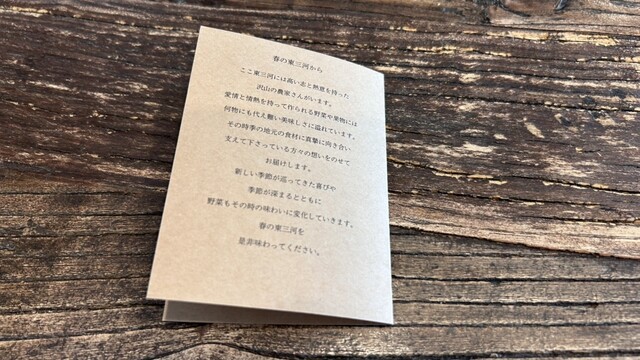 春の東三河から
ここ東三河には高い志と熱意を持った
沢山の農家さんがいます。
愛情と情熱を持って作られる野菜や果物には
何物にも代え難い美味しさに溢れています。
その時季の地元の食材に真摯に向き合い
支えて下さっている方々の想いをのせて
お届けします。
新しい季節が巡ってきた喜びや
季節が深まるとともに
野菜もその時の味わいに変化していきます。
春の東三河を
是非味わってください。